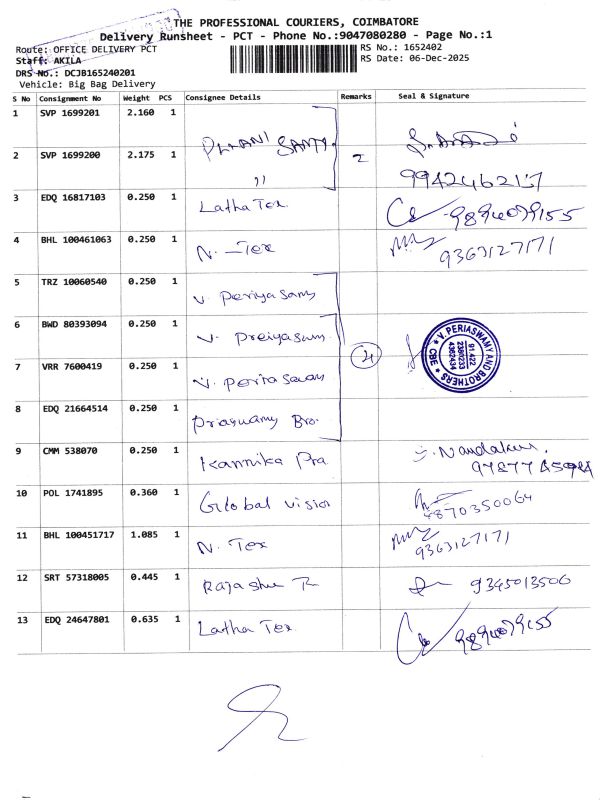 THE PROFESSIONAL COURIERS, COIMBATORE
Delivery Runsheet - PCT - Phone No.:9047080280 - Page No.:1
Route: OFFICE DELIVERY PCT
RS No.: 1652402
Staff: AKILA
RS Date: 06-Dec-2025
DRS No.: DCJB165240201
Vehicle: Big Bag Delivery
S No Consignment No Weight PCS Consignee Details Remarks Seal & Signature
1 SVP 1699201 2.160 1
2 SVP 1699200 2.175 1 ,, 2
3 EDQ 16817103 0.250 1 Latha Tex 9894079155
4 BHL 100461063 0.250 1 N. Tex 9363127171
5 TRZ 10060540 0.250 1 V. Periyasamy
6 BWD 80393094 0.250 1 V. Preiyasam
7 VRR 7600419 0.250 1 V. Periasamy
V. PERIASWAMY AND BROTHERS
* CBE *
8 EDQ 21664514 0.250 1 Praswamy Bro.
9 CMM 538070 0.250 1 Kannika Pra
10 POL 1741895 0.360 1 Global vision 8870350064
11 BHL 100451717 1.085 1 N. Tex 9363127171
12 SRT 57318005 0.445 1 9345013506
13 EDQ 24647801 0.635 1 Latha Tex 9894079155